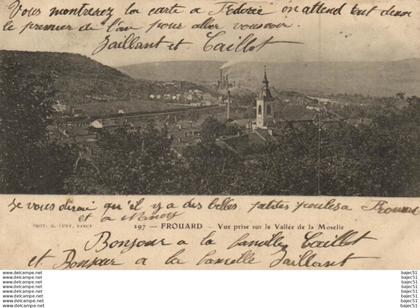 Vous montrerez la carte a Fedorie on attend tout deux
le premier de l'an pour aller vous voir
Jaillant et Caillot
Je vous dirai qu'il y a des belles petites poules a Frouard
et a Nancy
PHOT. G. CUNY, NANCY
197 — FROUARD — Vue prise sur la Vallée de la Moselle
Bonjour a la famille Caillot
et Bonjour a la famille Jaillant
bajec51 bajec51 bajec51 bajec51 bajec51 bajec51 bajec51 bajec51 bajec51 bajec51 bajec51